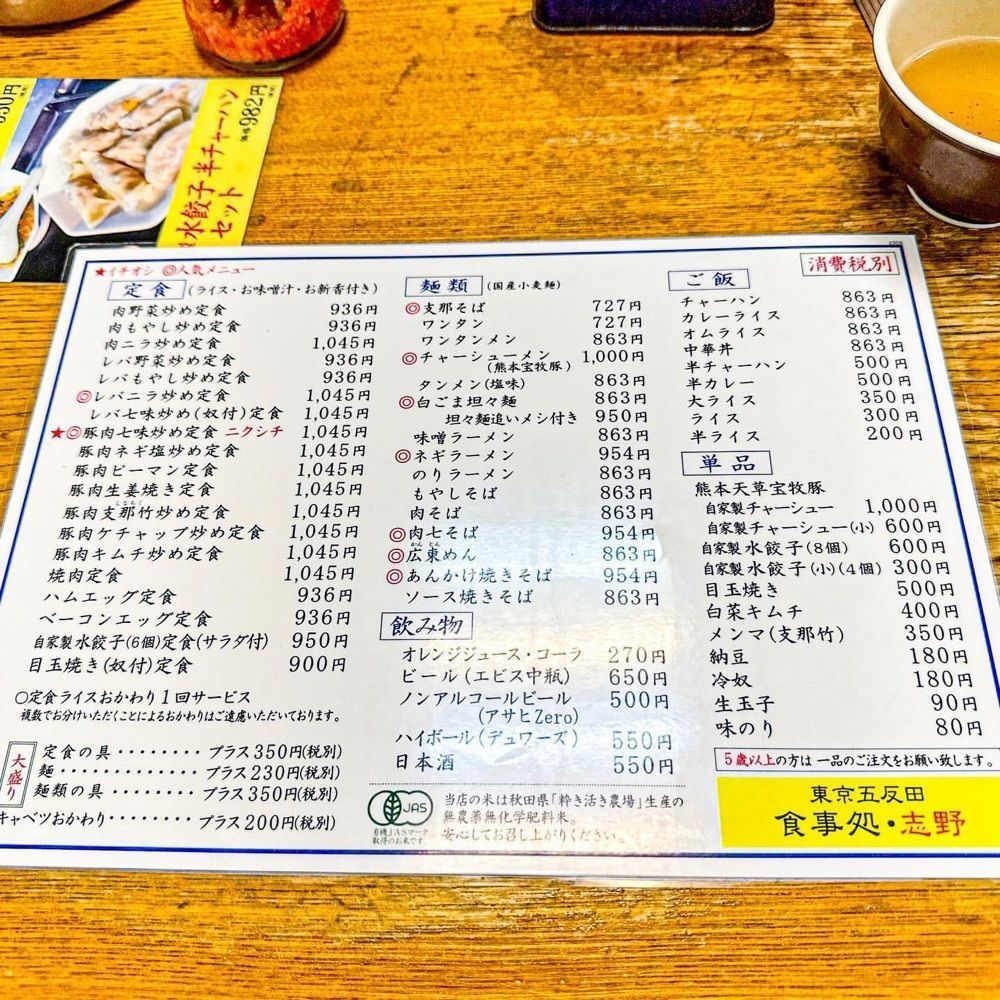 50円
価格982円
水餃子半チャーハン
セット
★イチオシ ◎人気メニュー
消費税別
定食 (ライス・お味噌汁・お新香付き)
肉野菜炒め定食 936円
肉もやし炒め定食 936円
肉ニラ炒め定食 1,045円
レバ野菜炒め定食 936円
レバもやし炒め定食 936円
◎レバニラ炒め定食 1,045円
レバ七味炒め(奴付)定食 1,045円
★◎豚肉七味炒め定食 ニクシチ 1,045円
豚肉ネギ塩炒め定食 1,045円
豚肉ピーマン定食 1,045円
豚肉生姜焼き定食 1,045円
豚肉支那竹炒め定食 1,045円
豚肉ケチャップ炒め定食 1,045円
豚肉キムチ炒め定食 1,045円
焼肉定食 1,045円
ハムエッグ定食 936円
ベーコンエッグ定食 936円
自家製水餃子(6個)定食(サラダ付) 950円
目玉焼き(奴付)定食 900円
○定食ライスおかわり1回サービス
複数でお分けいただくことによるおかわりはご遠慮いただいております。
大盛り
定食の具・・・・・・・・プラス350円(税別)
麺・・・・・・・・・・・・・プラス230円(税別)
麺類の具・・・・・・・・プラス350円(税別)
キャベツおかわり・・・・・・・・プラス200円(税別)
麺類 (国産小麦麺)
◎支那そば 727円
ワンタン 727円
ワンタンメン 863円
◎チャーシューメン 1,000円
(熊本宝牧豚)
タンメン(塩味) 863円
◎白ごま坦々麺 863円
坦々麺追いメシ付き 950円
味噌ラーメン 863円
◎ネギラーメン 954円
のりラーメン 863円
もやしそば 863円
肉そば 863円
◎肉七そば 954円
◎広東めん 863円
◎あんかけ焼きそば 954円
ソース焼きそば 863円
飲み物
オレンジジュース・コーラ 270円
ビール(エビス中瓶) 650円
ノンアルコールビール 500円
(アサヒZero)
ハイボール(デュワーズ) 550円
日本酒 550円
JAS
有機JASマーク
取得のお米です
当店の米は秋田県「粋き活き農場」生産の
無農薬無化学肥料米。
安心してお召し上がりください。
ご飯
チャーハン 863円
カレーライス 863円
オムライス 863円
中華丼 863円
半チャーハン 500円
半カレー 500円
大ライス 350円
ライス 300円
半ライス 200円
単品
熊本天草宝牧豚
自家製チャーシュー 1,000円
自家製チャーシュー(小) 600円
自家製水餃子(8個) 600円
自家製水餃子(小)(4個) 300円
目玉焼き 500円
白菜キムチ 400円
メンマ(支那竹) 350円
納豆 180円
冷奴 180円
生玉子 90円
味のり 80円
5歳以上の方は一品のご注文をお願い致します。
東京五反田
食事処・志野